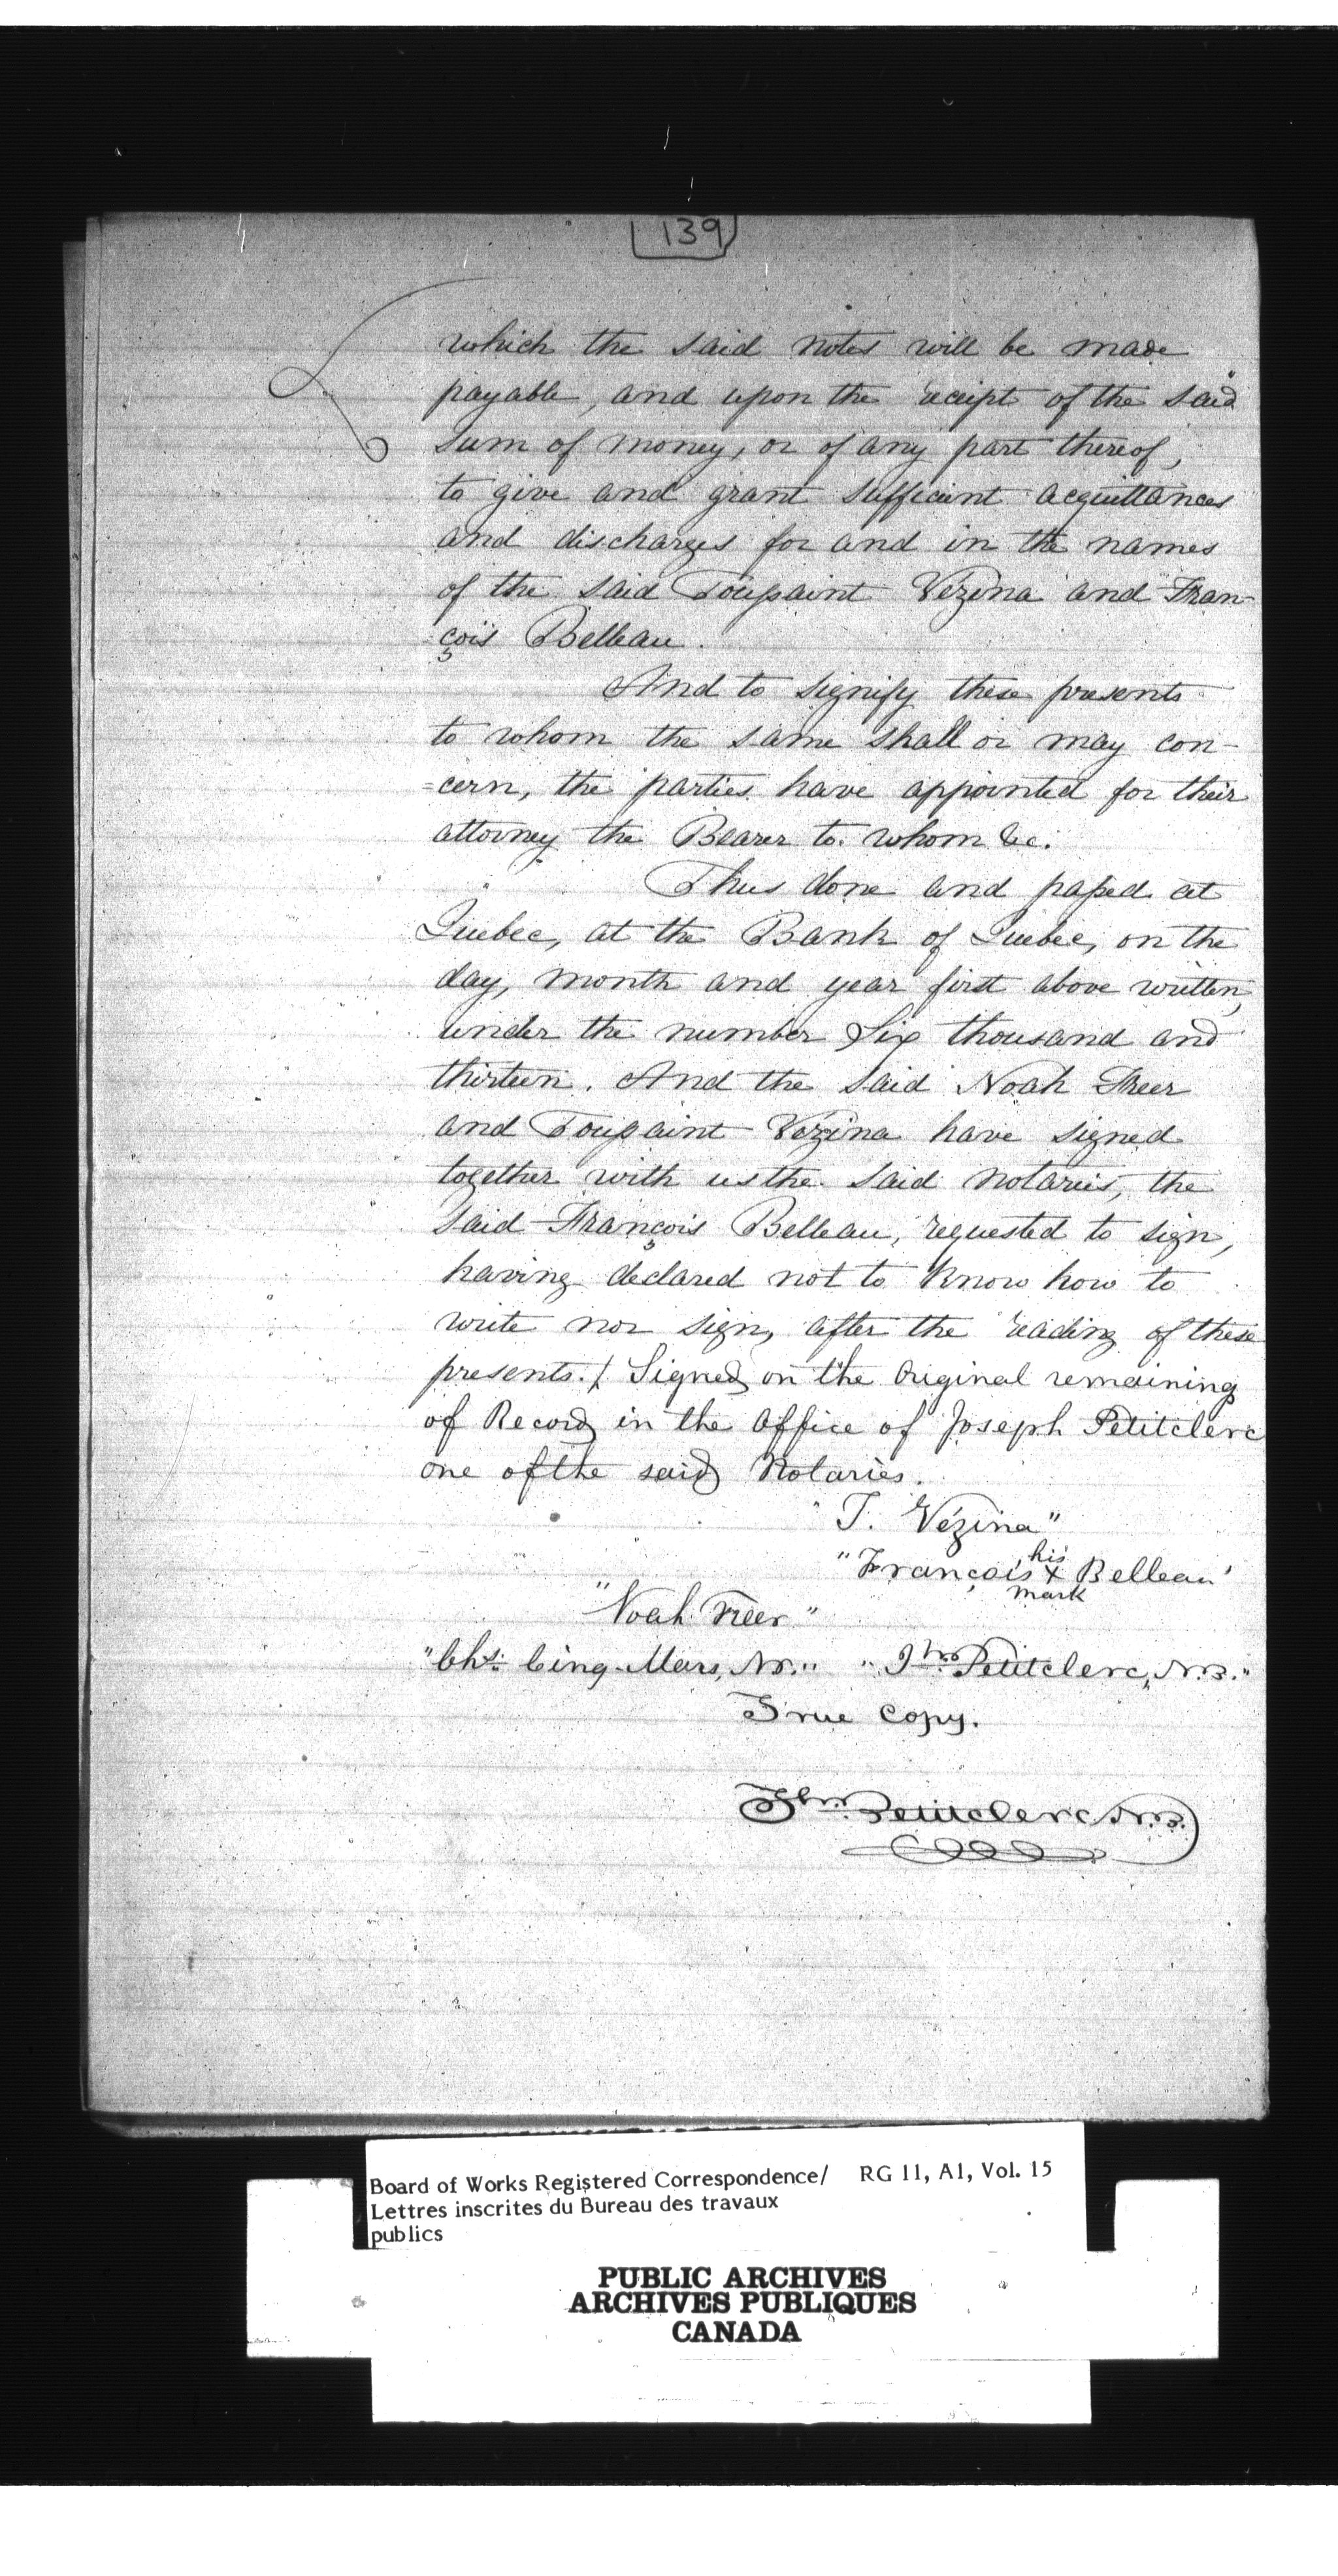 139
which the said notes will be made
payable, and upon the receipt of the said
sum of money, or of any part thereof,
to give and grant sufficient acquittances
and discharges for and in the names
of the said Toussaint Vezina and Fran-
çois Belleau.
And to signify these presents
to whom the same shall or may con-
=cern, the parties have appointed for their
attorney the Bearer to whom &c.
Thus done and passed at
Quebec, at the Bank of Quebec, on the
day, month and year first above written,
under the number Six thousand and
thirteen. And the said Noah Freer
and Toussaint Vézina have signed
together with us the said notaries, the
said François Belleau, requested to sign,
having declared not to know how to
write nor sign, after the reading of these
presents./. Signed on the Original remaining
of Record in the Office of Joseph Petitclerc
one of the said Notaries.
"T. Vézina"
"François his x mark Belleau"
"Noah Freer"
"Chs. Cinq-Mars, N.P." "Jh. Petitclerc, N.P."
True Copy.
Jh. Petitclerc N.P.
Board of Works Registered Correspondence/ RG 11, A1, Vol. 15
Lettres inscrites du Bureau des travaux
publics
PUBLIC ARCHIVES
ARCHIVES PUBLIQUES
CANADA